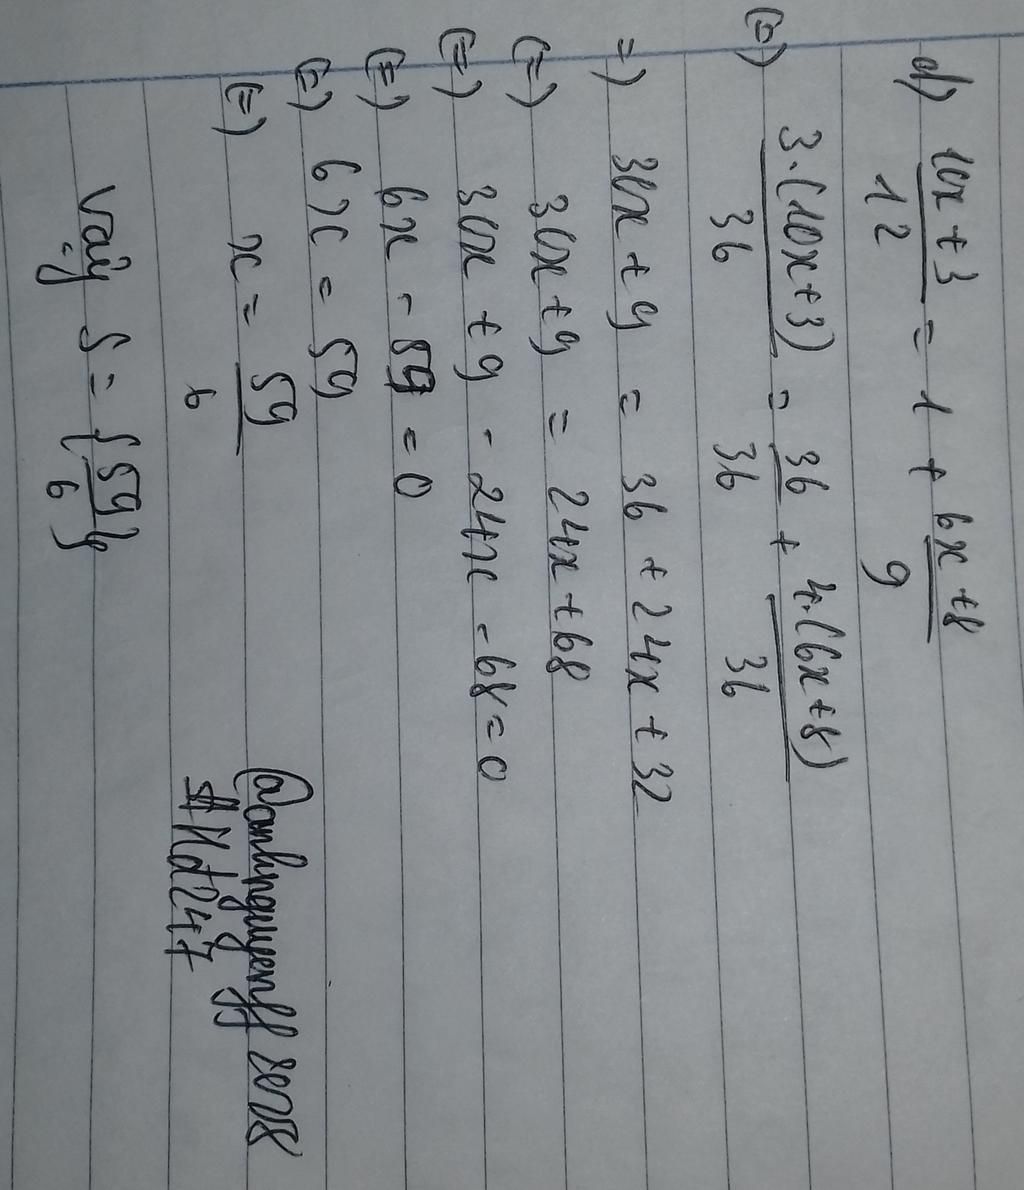 d) 10x+3/12 = 1 + 6x+8/9
(=) 3.(10x+3)/36 = 36/36 + 4.(6x+8)/36
=) 30x + 9 = 36 + 24x + 32
(=) 30x + 9 = 24x + 68
(=) 30x + 9 - 24x - 68 = 0
(=) 6x - 59 = 0
(=) 6x = 59
(=) x = 59/6
Vậy S = {59/6}
#Hd247